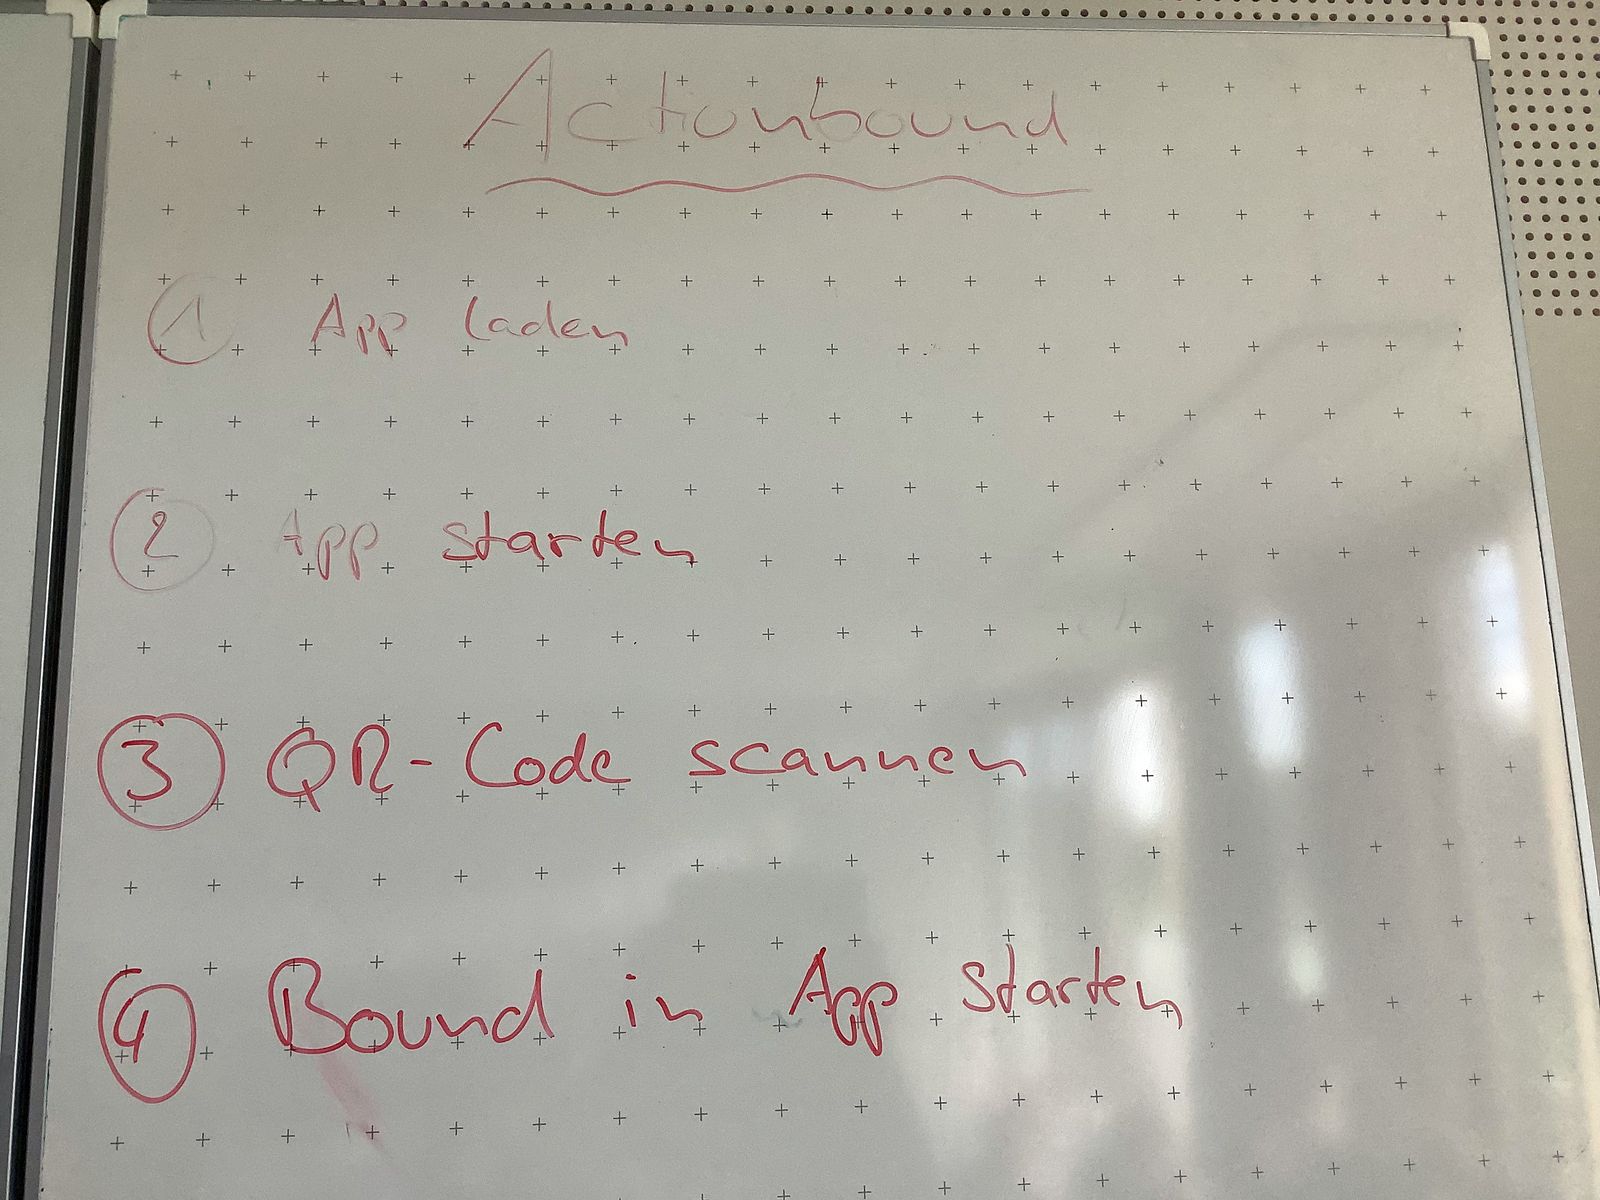 Actionbound
1 App laden
2 App starten
3 QR-Code scannen
4 Bound in App starten